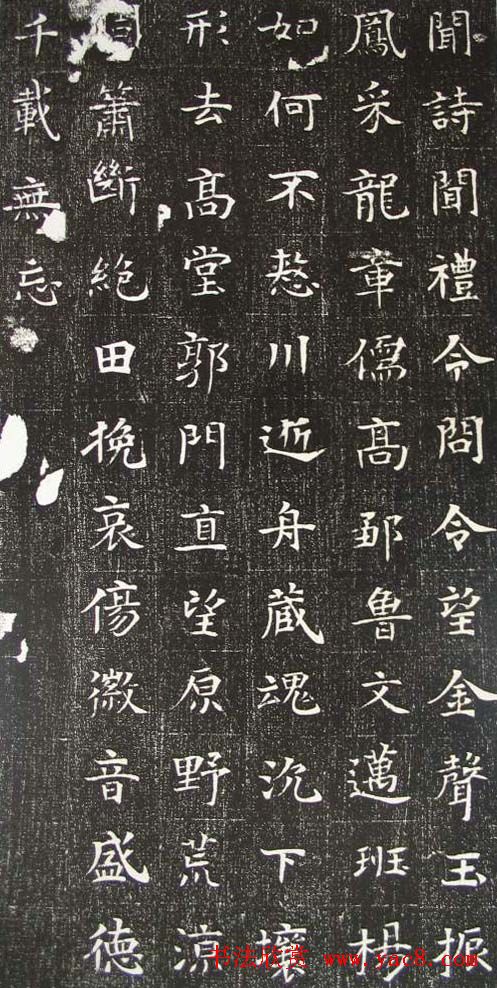 聞詩聞禮令問令望金聲玉振
鳳采龍章儒高鄒魯文邁班楊
如何不憖川逝舟藏魂沉下壤
形去高堂郭門直望原野荒涼
簫斷絕田挽哀傷徽音盛德
千載無忘
书法欣赏 www.yac8.com